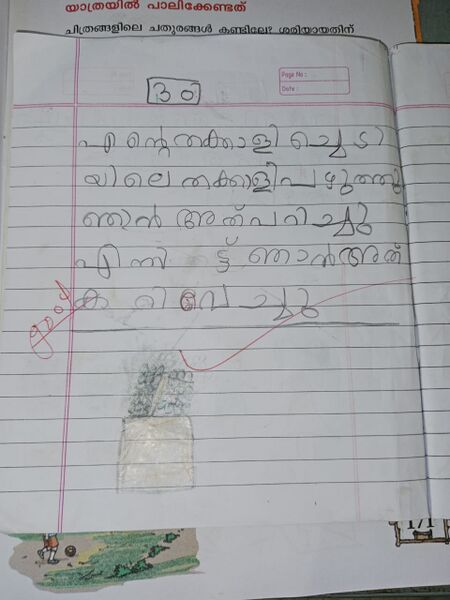 യാത്രയിൽ പാലിക്കേണ്ടത്
ചിത്രങ്ങളിലെ ചതുരങ്ങൾ കണ്ടില്ലേ? ശരിയായതിന്
Page No :
Date :
30
എന്റെ തക്കാളി ച്ചെടി
യിലെ തക്കാളി പഴുത്തു
ഞാൻ അത് പറിച്ചു
എന്നിട്ട് ഞാൻ അത്
കറിവേച്ചു
good
171